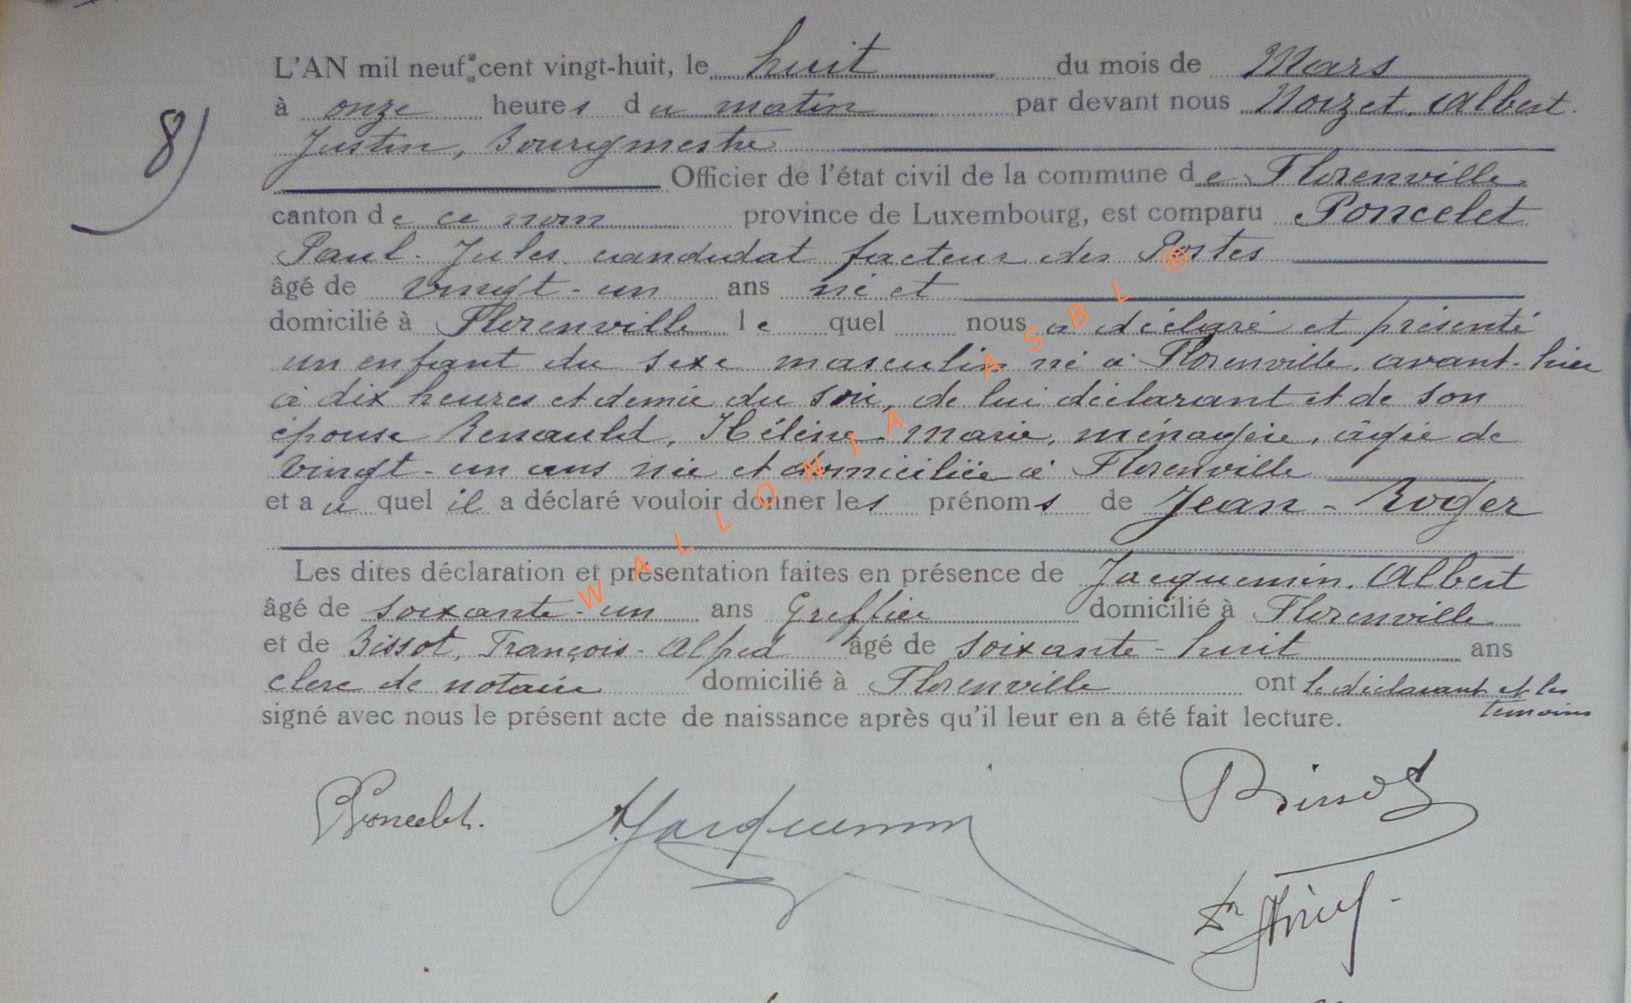 L'AN mil neuf cent vingt-huit, le huit du mois de Mars
8) à onze heures du matin par devant nous Noizet, Albert
Justin, Bourgmestre
Officier de l'état civil de la commune de Florenville
canton de ce nom province de Luxembourg, est comparu Poncelet
Paul-Jules candidat facteur des Postes
âgé de vingt-un ans né et
domicilié à Florenville lequel nous a déclaré et présenté
un enfant du sexe masculin né à Florenville, avant-hier
à dix heures et demie du soir, de lui déclarant et de son
épouse Renauld, Hélène-Marie, ménagère, âgée de
vingt-un ans née et domiciliée à Florenville
et au quel il a déclaré vouloir donner les prénoms de Jean-Roger
Les dites déclaration et présentation faites en présence de Jacquemin, Albert
âgé de soixante-un ans Greffier domicilié à Florenville
et de Bissot, François-Alfred âgé de soixante-huit ans
clerc de notaire domicilié à Florenville ont le déclarant et les
témoins
signé avec nous le présent acte de naissance après qu'il leur en a été fait lecture.
PPoncelet. AJacquemin Bissot
WALLONIA ASBL ®